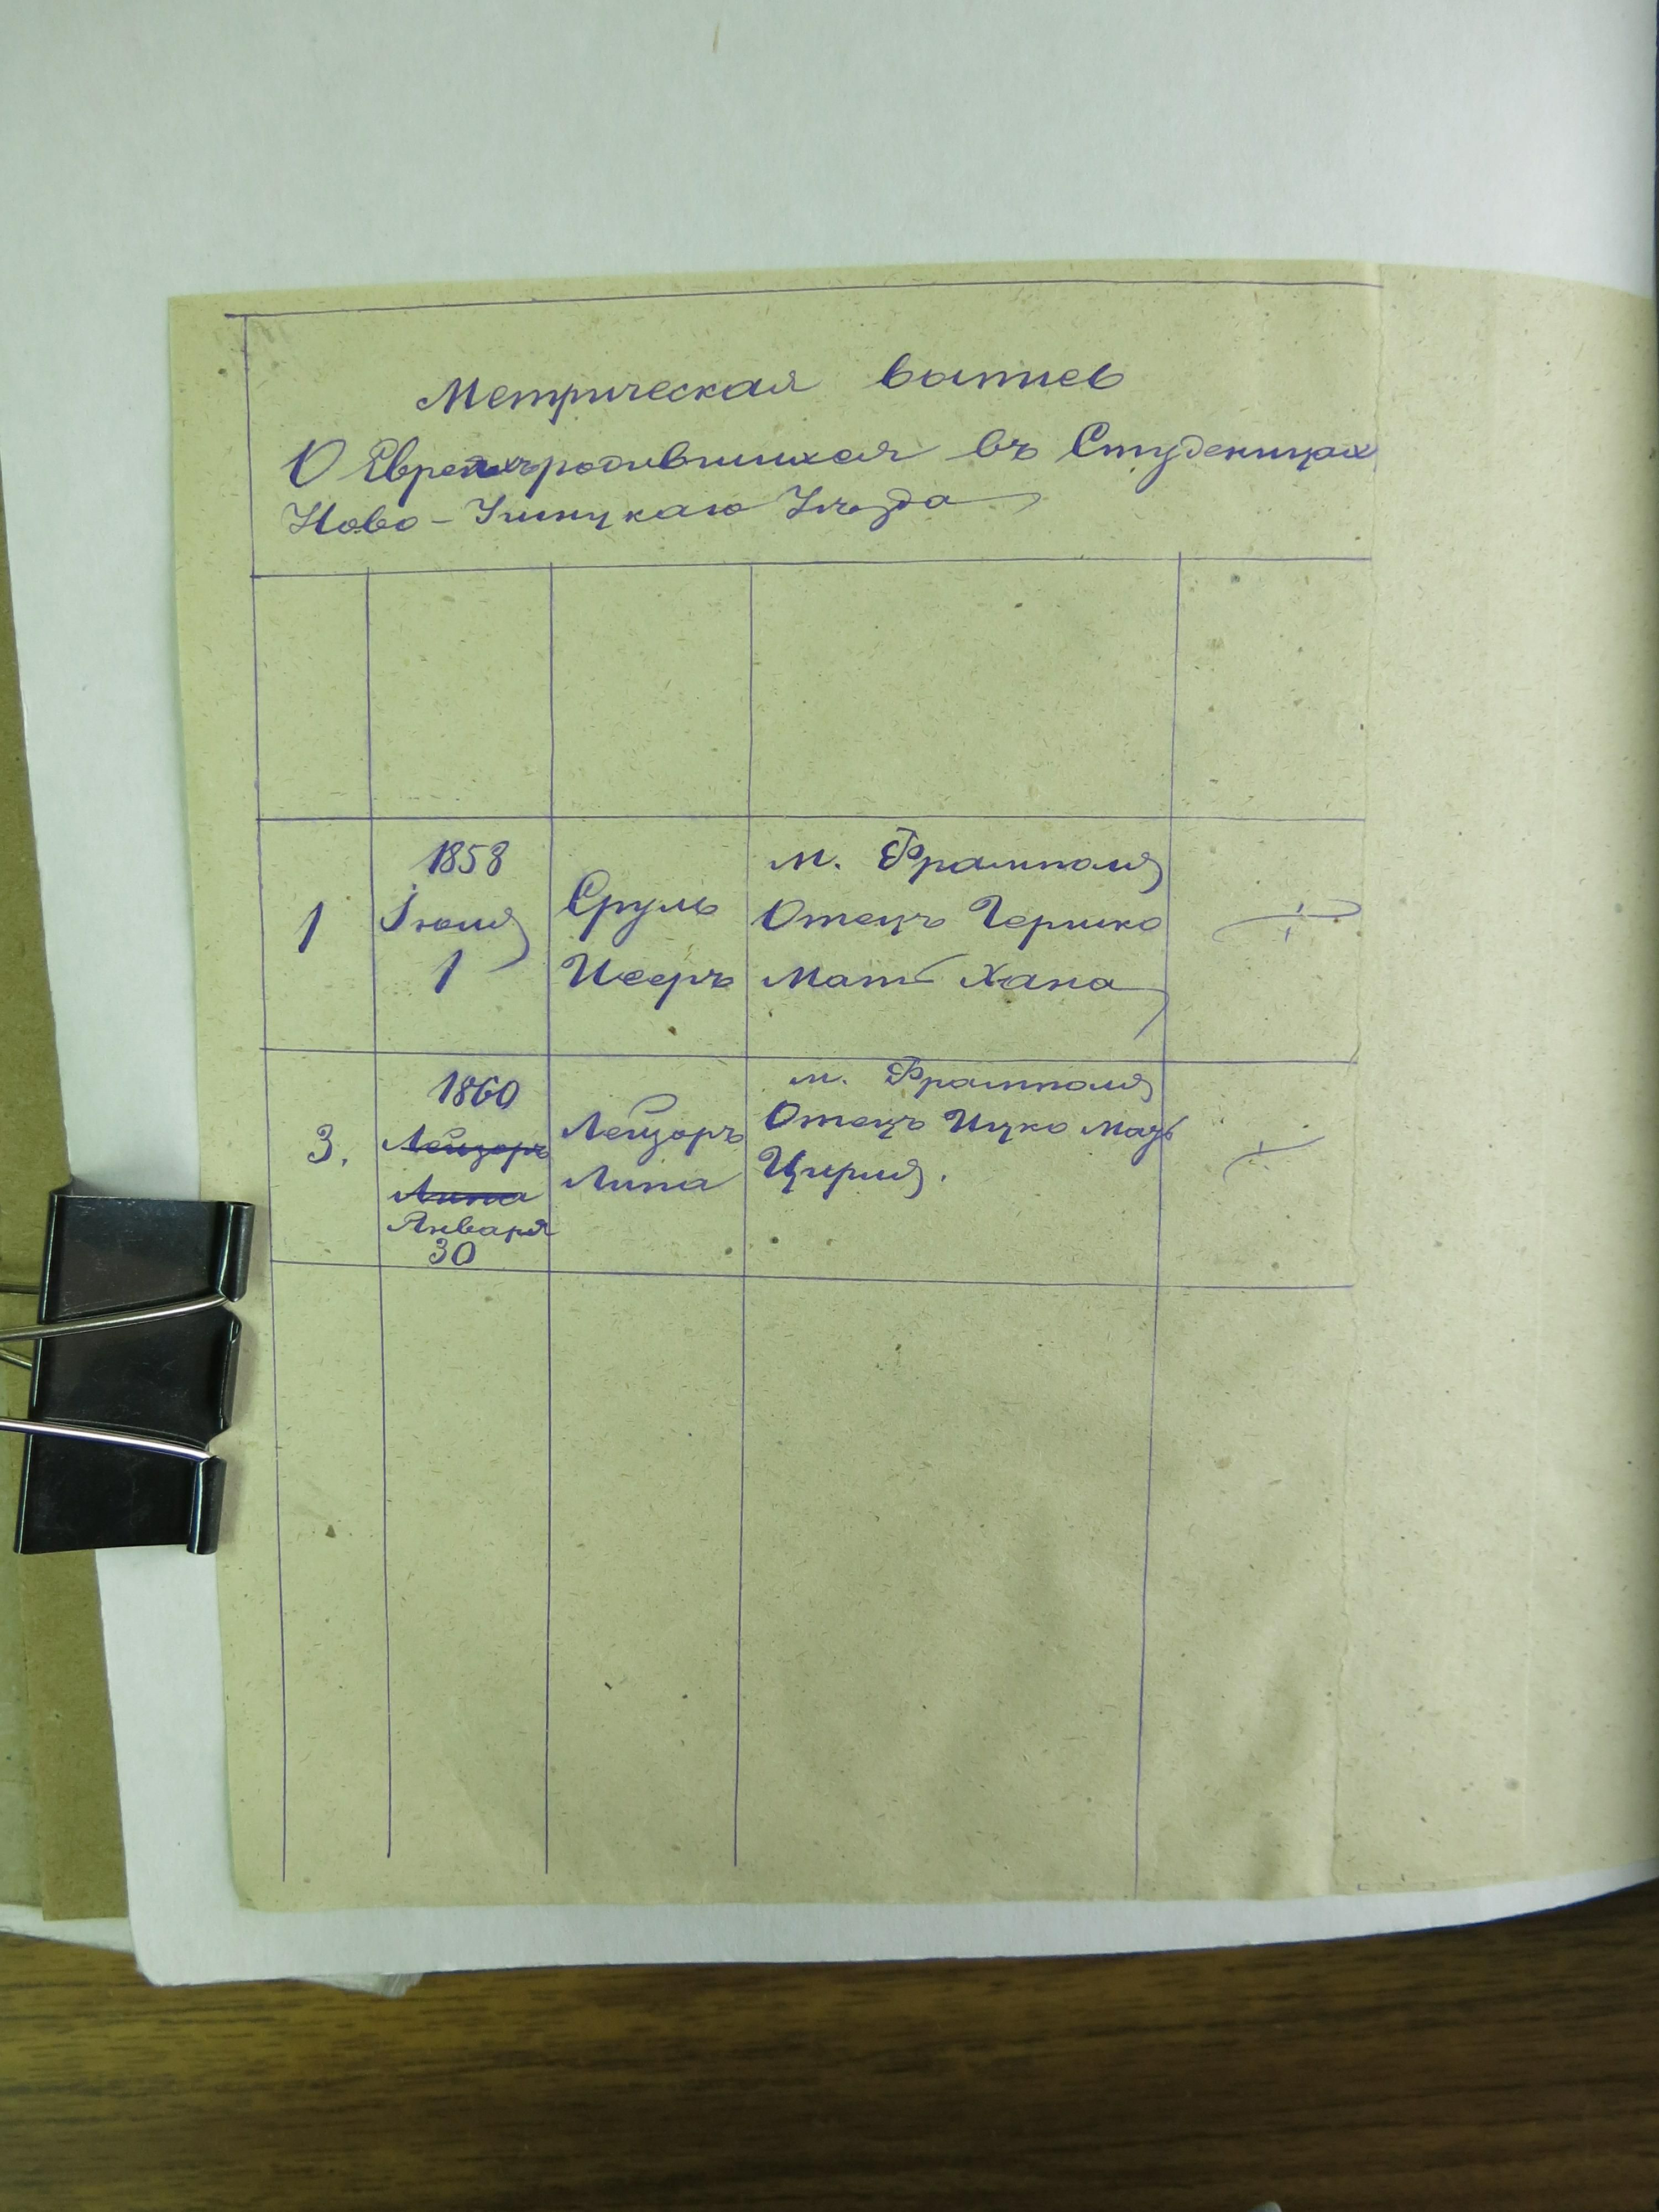 Метрическая выпись
О Евреяхъ родившихся въ Студеницах
Ново-Ушицкаго Уѣзда
1
1858
Іюля
1
Сруль
Исеръ
м. Фрампола
Отецъ Гершко
Мать Хана
3.
1860
Лейзоръ
Липа
Января
30
Лейзоръ
Липа
м. Фрампола
Отецъ Ицко Мать
Цирля.